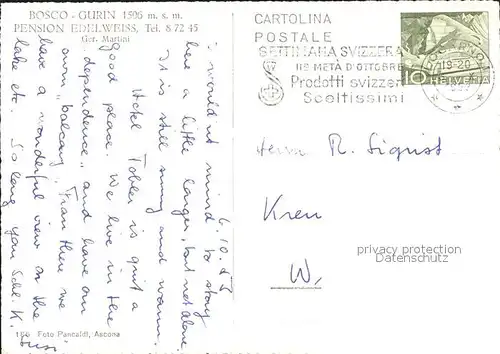 BOSCO - GURIN 1506 m. s. m.
PENSION EDELWEISS, Tel. 8 72 45
Ger. Martini
6.10.55
I wouldn't mind to stay
here a little longer, but not alone.
It is still sunny and warm.
Hotel Tobler is quit a
good place. We live in the
"dependence" and have an
own "balcony". From there we
have a wonderful view on the
lake etc. So long your Schl. K.
166 Foto Pancaldi, Ascona
CARTOLINA
POSTALE
SETTIMANA SVIZZERA
IIa METÀ D'OTTOBRE
Prodotti svizzeri
Sceltissimi
19-20
10 HELVETIA
Herrn R. Sigrist
W.
privacy protection
watermark